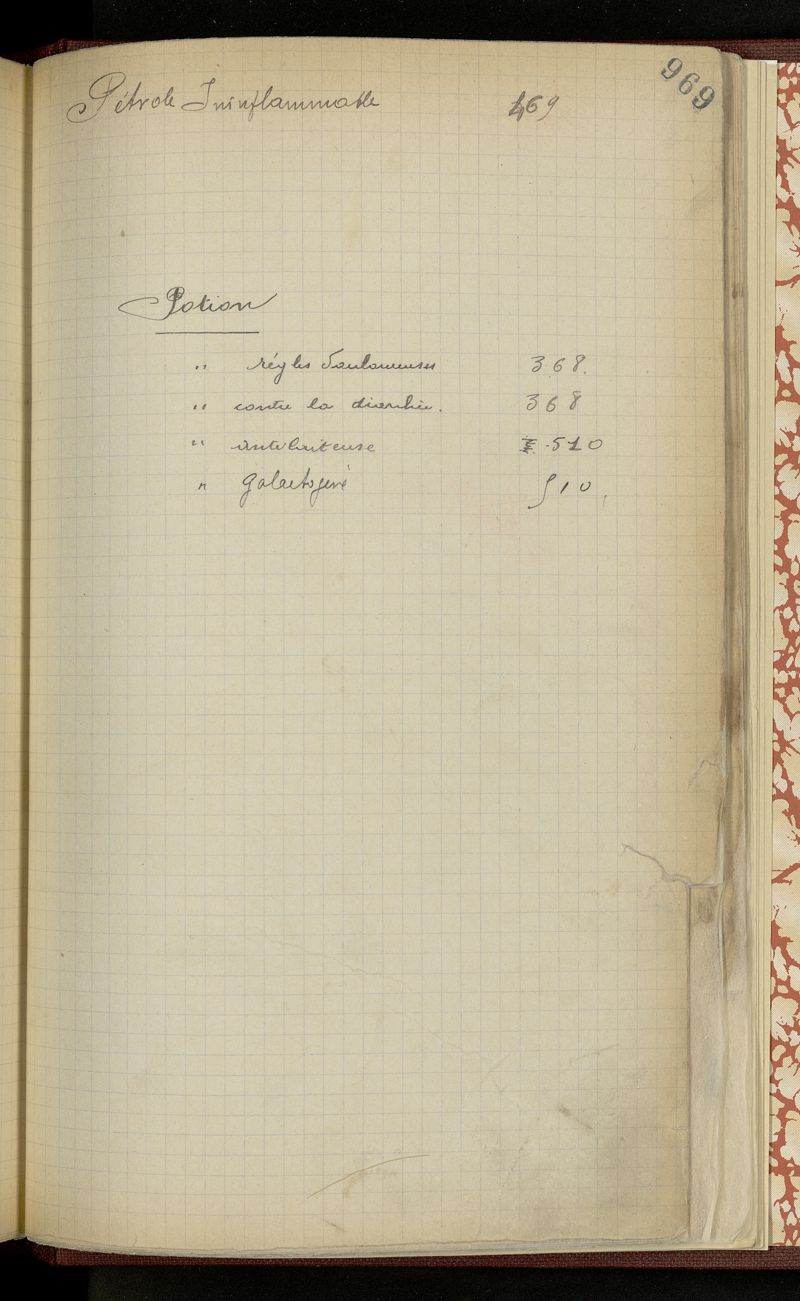 969
Pétrole Ininflammable 469
Potion
" régles douloureuses 368.
" contre la diarrhée. 368
" antilaiteuse 510
" Galactogène 510